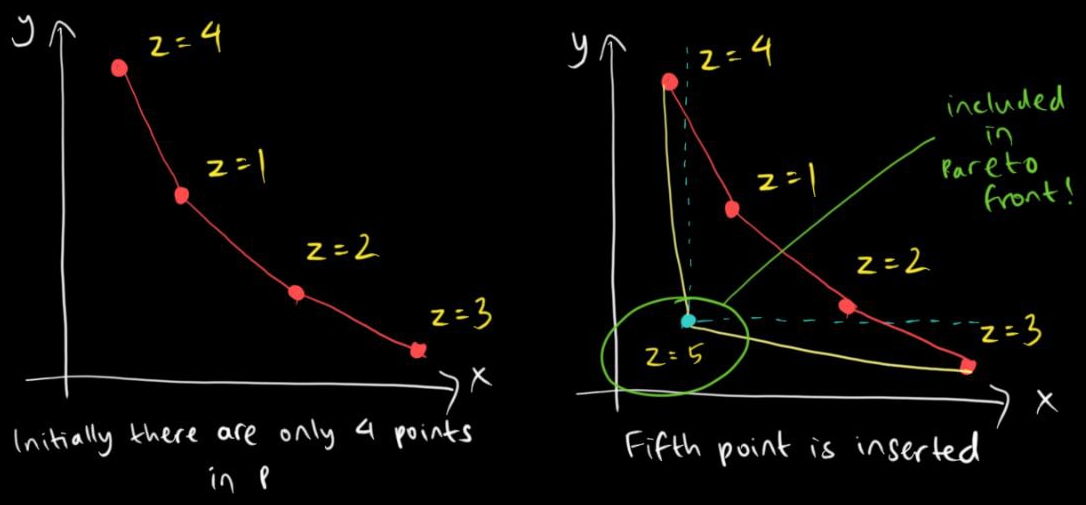 y
z=4
z=1
z=2
z=3
x
Initially there are only 4 points
in P
y
z=4
included
in
Pareto
front!
z=1
z=2
z=3
z=5
x
Fifth point is inserted